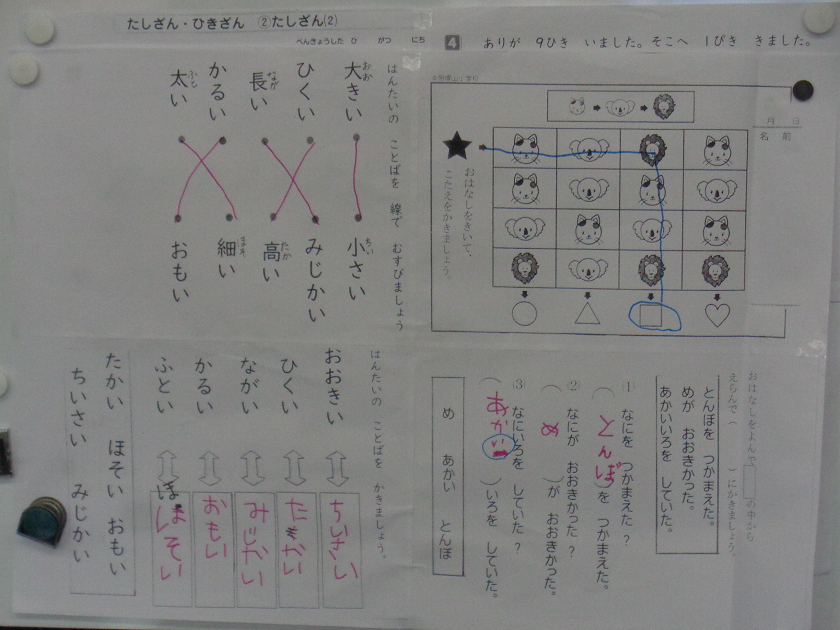 たしざん・ひきざん ②たしざん(2)
べんきょうした ひ がつ にち
4 ありが 9ひき いました。そこへ 1ぴき きました。
はんたいの ことばを 線で むすびましょう
大きい
おお
ひくい
長い
なが
かるい
太い
ふと
小さい
ちい
みじかい
高い
たか
細い
ほそ
おもい
月 日
名 前
おはなしをきいて、
こたえをかきましょう。
はんたいの ことばを かきましょう。
おおきい
ちいさい
ひくい
たかい
ながい
みじかい
かるい
おもい
ふとい
ほそい
たかい ほそい おもい
ちいさい みじかい
おはなしをよんで の中から
えらんで( )にかきましょう。
とんぼを つかまえた。
めが おおきかった。
あかいいろを していた。
(1) なにを つかまえた?
(とんぼ)を つかまえた。
(2) なにが おおきかった?
(め)が おおきかった。
(3) なにいろを していた?
(あかい)いろを していた。
め あかい とんぼ